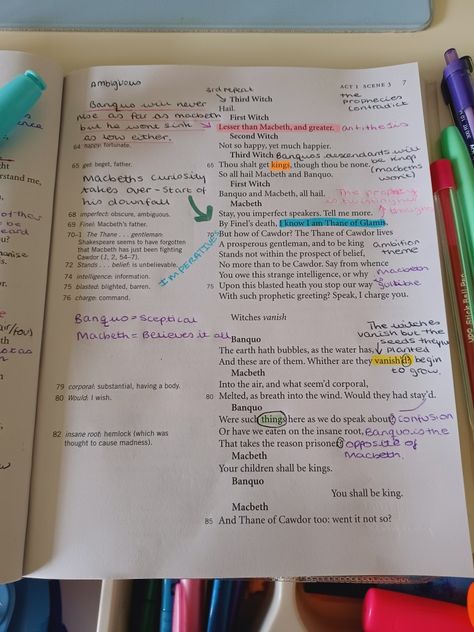 AMBIGUOUS
3rd repeat
ACT 1 SCENE 3
7
the
prophecies
contradick
Banquo will never
rise as far as macbeth
but he wont sink
as low either.
Third Witch
Hail.
First Witch
Lesser than Macbeth, and greater.
antithesis
Second Witch
64 happy: fortunate.
Not so happy, yet much happier.
Third Witch
Banquos ascendants will
be king
(macbeths
wont)
65 get: beget, father.
65 Thou shalt get kings, though thou be none.
So all hail Macbeth and Banquo.
First Witch
Banquo and Macbeth, all hail.
Macbeths curiosity
takes over - start of
his downfall
Macbeth
68 imperfect: obscure, ambiguous.
Stay, you imperfect speakers. Tell me more.
69 Finel: Macbeth's father.
By Finel's death, I know I am Thane of Glamis,
70–1 The Thane . . . gentleman:
Shakespeare seems to have forgotten
that Macbeth has just been fighting
Cawdor (1, 2, 54–7).
70 But how of Cawdor? The Thane of Cawdor lives
IMPERATIVE
A prosperous gentleman, and to be king
ambition
theme
72 Stands . . . belief: is unbelievable.
Stands not within the prospect of belief,
No more than to be Cawdor. Say from whence
74 intelligence: information.
You owe this strange intelligence, or why
macbeth
75 blasted: blighted, barren.
75 Upon this blasted heath you stop our way
76 charge: command.
With such prophetic greeting? Speak, I charge you.
Banquo = sceptical
Macbeth = Believes it all
Witches vanish
The witches
vanish but the
seeds they
planted
begin
to grow.
Banquo
The earth hath bubbles, as the water has,
And these are of them. Whither are they vanish'd?
Macbeth
79 corporal: substantial, having a body.
Into the air, and what seem'd corporal,
80 Would: I wish.
80 Melted, as breath into the wind. Would they had stay'd.
Banquo
Were such things here as we do speak about?
confusion
82 insane root: hemlock (which was
thought to cause madness).
Or have we eaten on the insane root,
Banquo is the
opposite of
Macbeth.
That takes the reason prisoner?
Macbeth
Your children shall be kings.
Banquo
You shall be king.
Macbeth
85 And Thane of Cawdor too: went it not so?